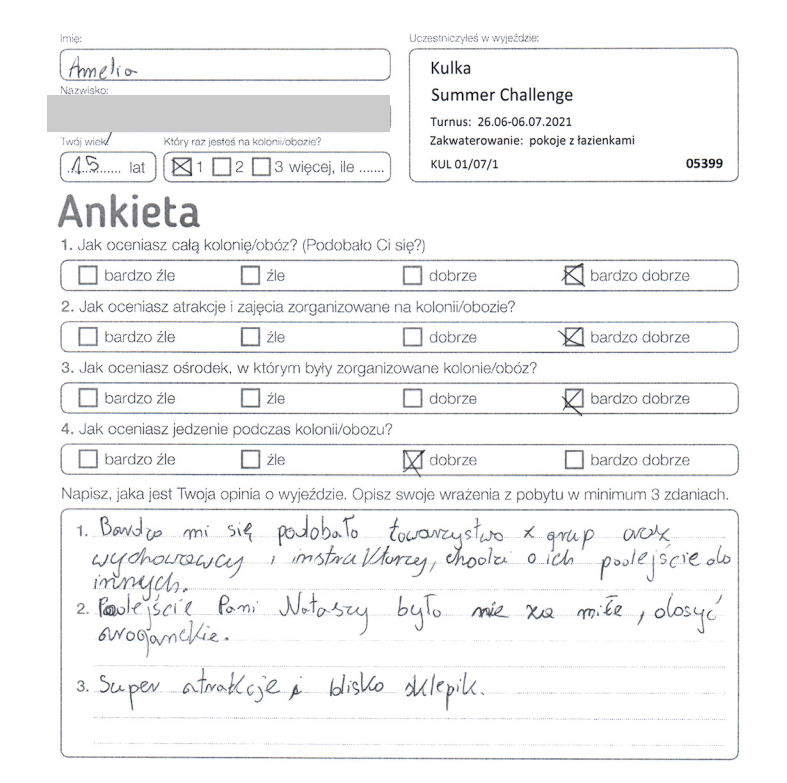 Imię:
Amelia
Nazwisko:
Twój wiek
15 lat
Który raz jesteś na kolonii/obozie?
1 2 3 więcej, ile .......
Uczestniczyłeś w wyjeździe:
Kulka
Summer Challenge
Turnus: 26.06-06.07.2021
Zakwaterowanie: pokoje z łazienkami
KUL 01/07/1 05399
Ankieta
1. Jak oceniasz całą kolonię/obóz? (Podobało Ci się?)
bardzo źle źle dobrze bardzo dobrze
2. Jak oceniasz atrakcje i zajęcia zorganizowane na kolonii/obozie?
bardzo źle źle dobrze bardzo dobrze
3. Jak oceniasz ośrodek, w którym były zorganizowane kolonie/obóz?
bardzo źle źle dobrze bardzo dobrze
4. Jak oceniasz jedzenie podczas kolonii/obozu?
bardzo źle źle dobrze bardzo dobrze
Napisz, jaka jest Twoja opinia o wyjeździe. Opisz swoje wrażenia z pobytu w minimum 3 zdaniach.
1. Bardzo mi się podobało towarzystwo z grup oraz
wychowawcy i instruktorzy, chodzi o ich podejście do
innych.
2. Podejście Pani Nataszy było nie za miłe, dosyć
aroganckie.
3. Super atrakcje i blisko sklepik.